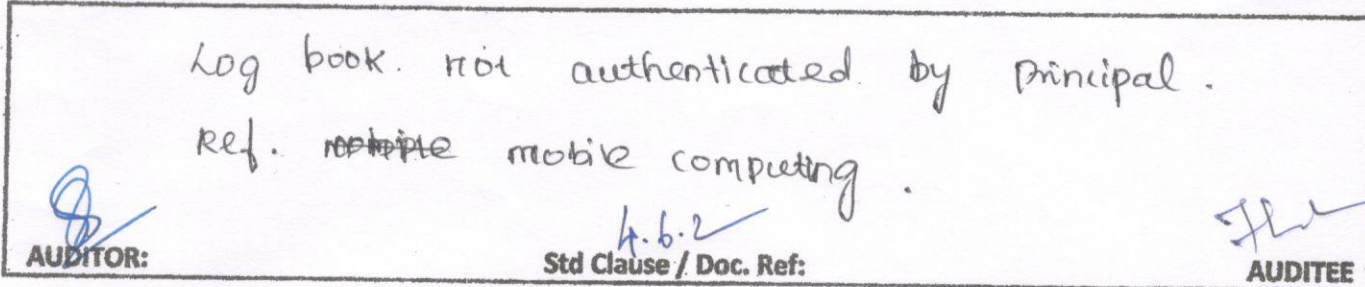 Log book. not authenticated. by Principal.
Ref. mobile computing.
4.6.2
AUDITOR: Std Clause / Doc. Ref: AUDITEE